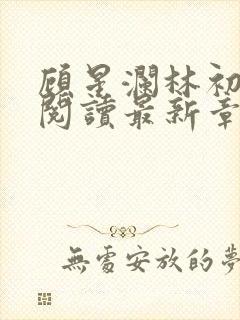 顾星瀾林初
閱讀最新章
無處安放的夢